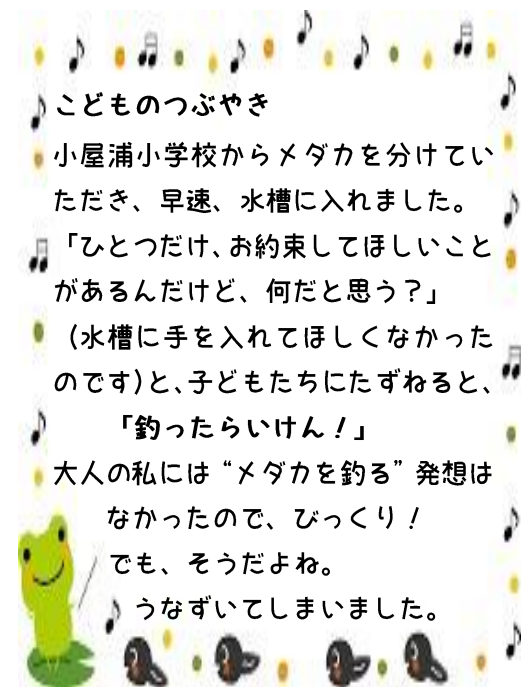 こどものつぶやき
小屋浦小学校からメダカを分けてい
ただき、早速、水槽に入れました。
「ひとつだけ、お約束してほしいこと
があるんだけど、何だと思う？」
（水槽に手を入れてほしくなかった
のです)と、子どもたちにたずねると、
「釣ったらいけん！」
大人の私には“メダカを釣る”発想は
なかったので、びっくり！
でも、そうだよね。
うなずいてしまいました。